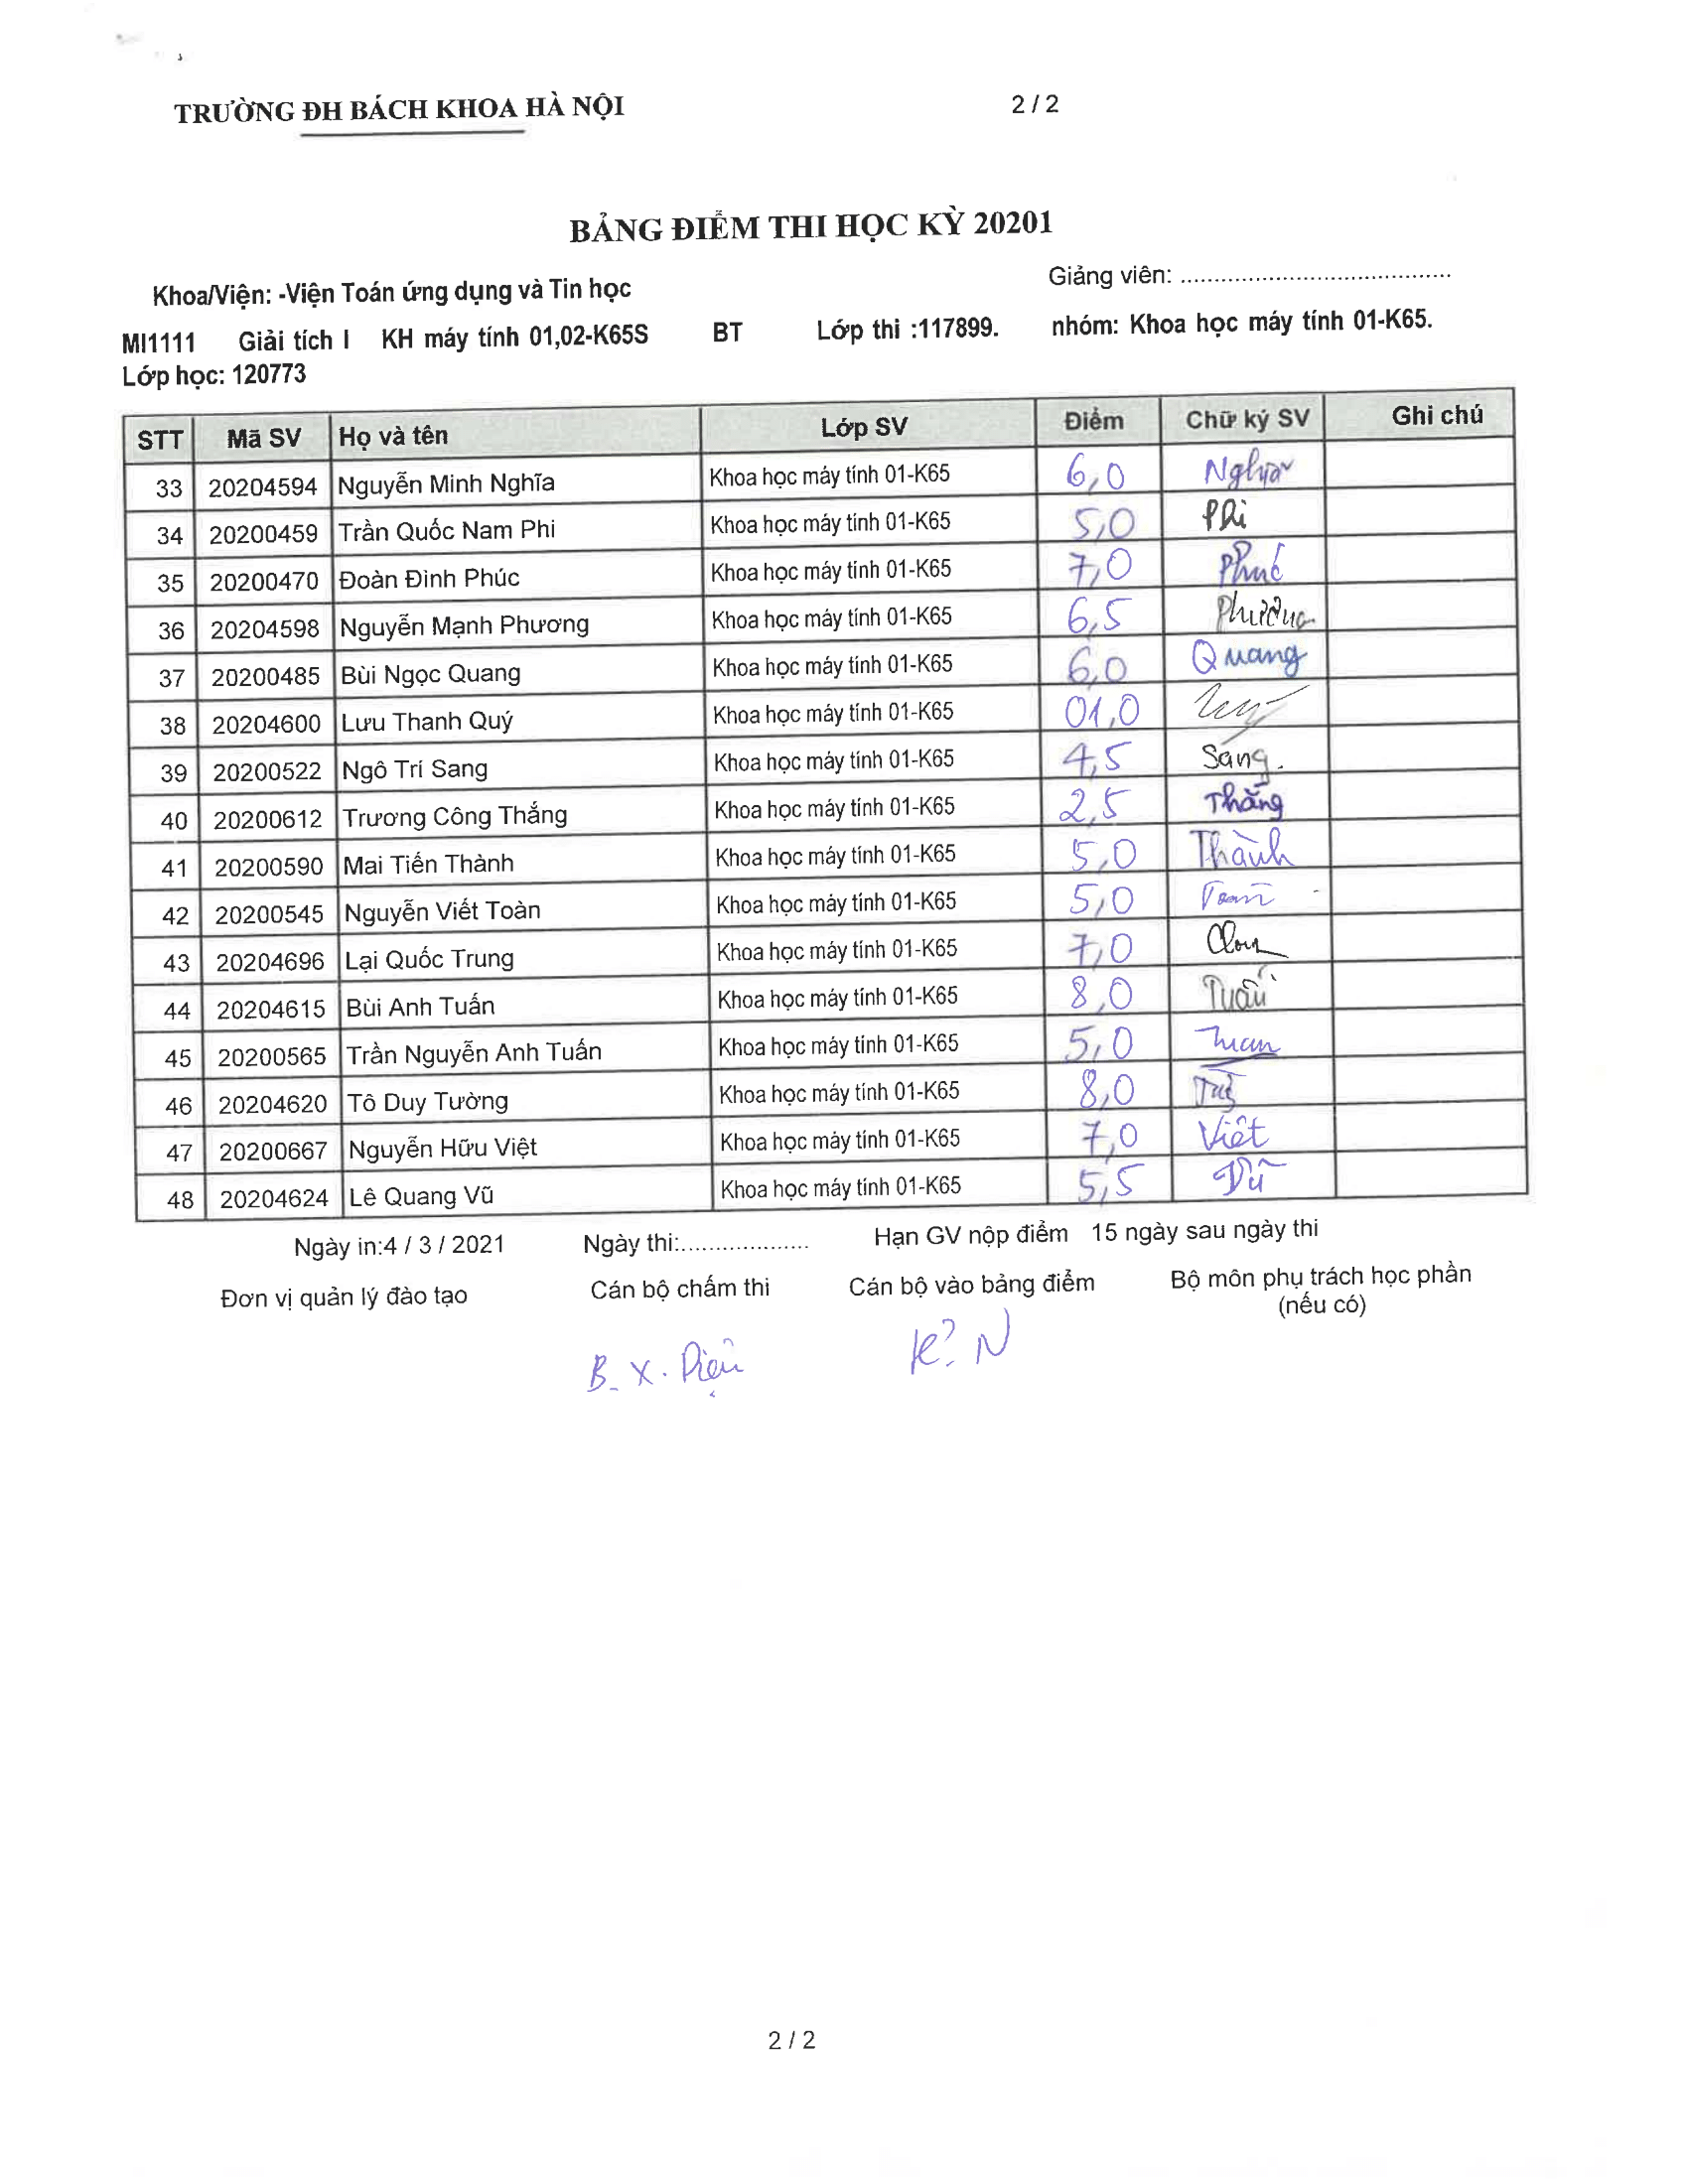 TRƯỜNG ĐH BÁCH KHOA HÀ NỘI 2 / 2
BẢNG ĐIỂM THI HỌC KỲ 20201
Khoa/Viện: -Viện Toán ứng dụng và Tin học Giảng viên: ........................................
MI1111 Giải tích I KH máy tính 01,02-K65S BT Lớp thi :117899. nhóm: Khoa học máy tính 01-K65.
Lớp học: 120773
STT Mã SV Họ và tên Lớp SV Điểm Chữ ký SV Ghi chú
33 20204594 Nguyễn Minh Nghĩa Khoa học máy tính 01-K65 6,0 Nghĩa
34 20200459 Trần Quốc Nam Phi Khoa học máy tính 01-K65 5,0 Phi
35 20200470 Đoàn Đình Phúc Khoa học máy tính 01-K65 7,0 Phúc
36 20204598 Nguyễn Mạnh Phương Khoa học máy tính 01-K65 6,5 Phương
37 20200485 Bùi Ngọc Quang Khoa học máy tính 01-K65 6,0 Quang
38 20204600 Lưu Thanh Quý Khoa học máy tính 01-K65 01,0
39 20200522 Ngô Trí Sang Khoa học máy tính 01-K65 4,5 Sang.
40 20200612 Trương Công Thắng Khoa học máy tính 01-K65 2,5 Thắng
41 20200590 Mai Tiến Thành Khoa học máy tính 01-K65 5,0 Thành
42 20200545 Nguyễn Viết Toàn Khoa học máy tính 01-K65 5,0 Toàn
43 20204696 Lại Quốc Trung Khoa học máy tính 01-K65 7,0
44 20204615 Bùi Anh Tuấn Khoa học máy tính 01-K65 8,0 Tuấn
45 20200565 Trần Nguyễn Anh Tuấn Khoa học máy tính 01-K65 5,0 Tuan
46 20204620 Tô Duy Tường Khoa học máy tính 01-K65 8,0
47 20200667 Nguyễn Hữu Việt Khoa học máy tính 01-K65 7,0 Việt
48 20204624 Lê Quang Vũ Khoa học máy tính 01-K65 5,5 Vũ
Ngày in:4 / 3 / 2021 Ngày thi:................... Hạn GV nộp điểm 15 ngày sau ngày thi
Đơn vị quản lý đào tạo Cán bộ chấm thi Cán bộ vào bảng điểm Bộ môn phụ trách học phần
(nếu có)
B. X. Diệu
2 / 2